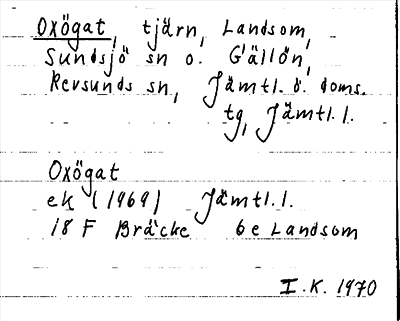 Oxögat, tjärn, Landsom,
Sundsjö sn o. Gällön,
Revsunds sn, Jämtl. ö. doms.
tg, Jämtl. l.
Oxögat
ek (1969) Jämtl. l.
18 F Bräcke 6e Landsom
I.K. 1970